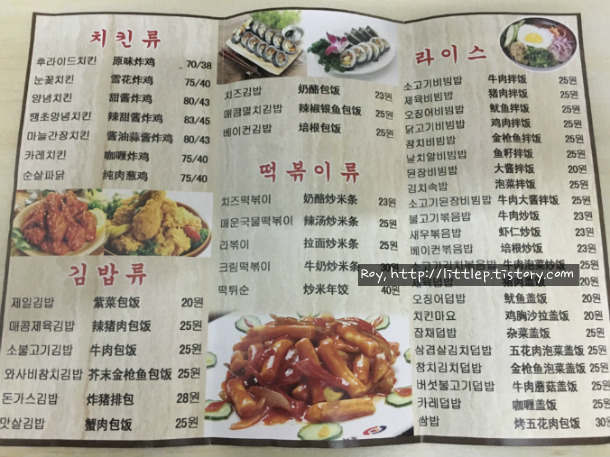 치킨류
후라이드치킨 原味炸鸡 70/38
눈꽃치킨 雪花炸鸡 75/40
양념치킨 甜酱炸鸡 80/43
땡초양념치킨 辣甜酱炸鸡 83/45
마늘간장치킨 酱油蒜酱炸鸡 80/43
카레치킨 咖喱炸鸡 75/40
순살파닭 纯肉葱鸡 75/40
김밥류
제일김밥 紫菜包饭 20원
매콤제육김밥 辣猪肉包饭 25원
소불고기김밥 牛肉包饭 25원
와사비참치김밥 芥末金枪鱼包饭 25원
돈가스김밥 炸猪排包 28원
맛살김밥 蟹肉包饭 25원
치즈김밥 奶酪包饭 23원
매콤멸치김밥 辣椒银鱼包饭 25원
베이컨김밥 培根包饭 25원
떡볶이류
치즈떡볶이 奶酪炒米条 23원
매운국물떡볶이 辣汤炒米条 25원
라볶이 拉面炒米条 25원
크림떡볶이 牛奶炒米条 30원
떡튀순 炒米年饺 40원
라이스
소고기비빔밥 牛肉拌饭 25원
제육비빔밥 猪肉拌饭 25원
오징어비빔밥 鱿鱼拌饭 25원
닭고기비빔밥 鸡肉拌饭 25원
참치비빔밥 金枪鱼拌饭 25원
날치알비빔밥 鱼籽拌饭 25원
된장비빔밥 大酱拌饭 20원
김치속밥 泡菜拌饭 25원
소고기된장비빔밥 牛肉大酱拌饭 25원
불고기볶음밥 牛肉炒饭 23원
새우볶음밥 虾仁炒饭 25원
베이컨볶음밥 培根炒饭 25원
牛肉泡菜炒饭 25원
Roy, http://littlep.tistory.com
제육덮밥 猪肉盖饭 20원
오징어덮밥 鱿鱼盖饭 20원
치킨마요 鸡胸沙拉盖饭 20원
잡채덮밥 杂菜盖饭 25원
삼겹살김치덮밥 五花肉泡菜盖饭 25원
참치김치덮밥 金枪鱼泡菜盖饭 25원
버섯불고기덮밥 牛肉蘑菇盖饭 25원
카레덮밥 咖喱盖饭 25원
쌈밥 烤五花肉包饭 30원